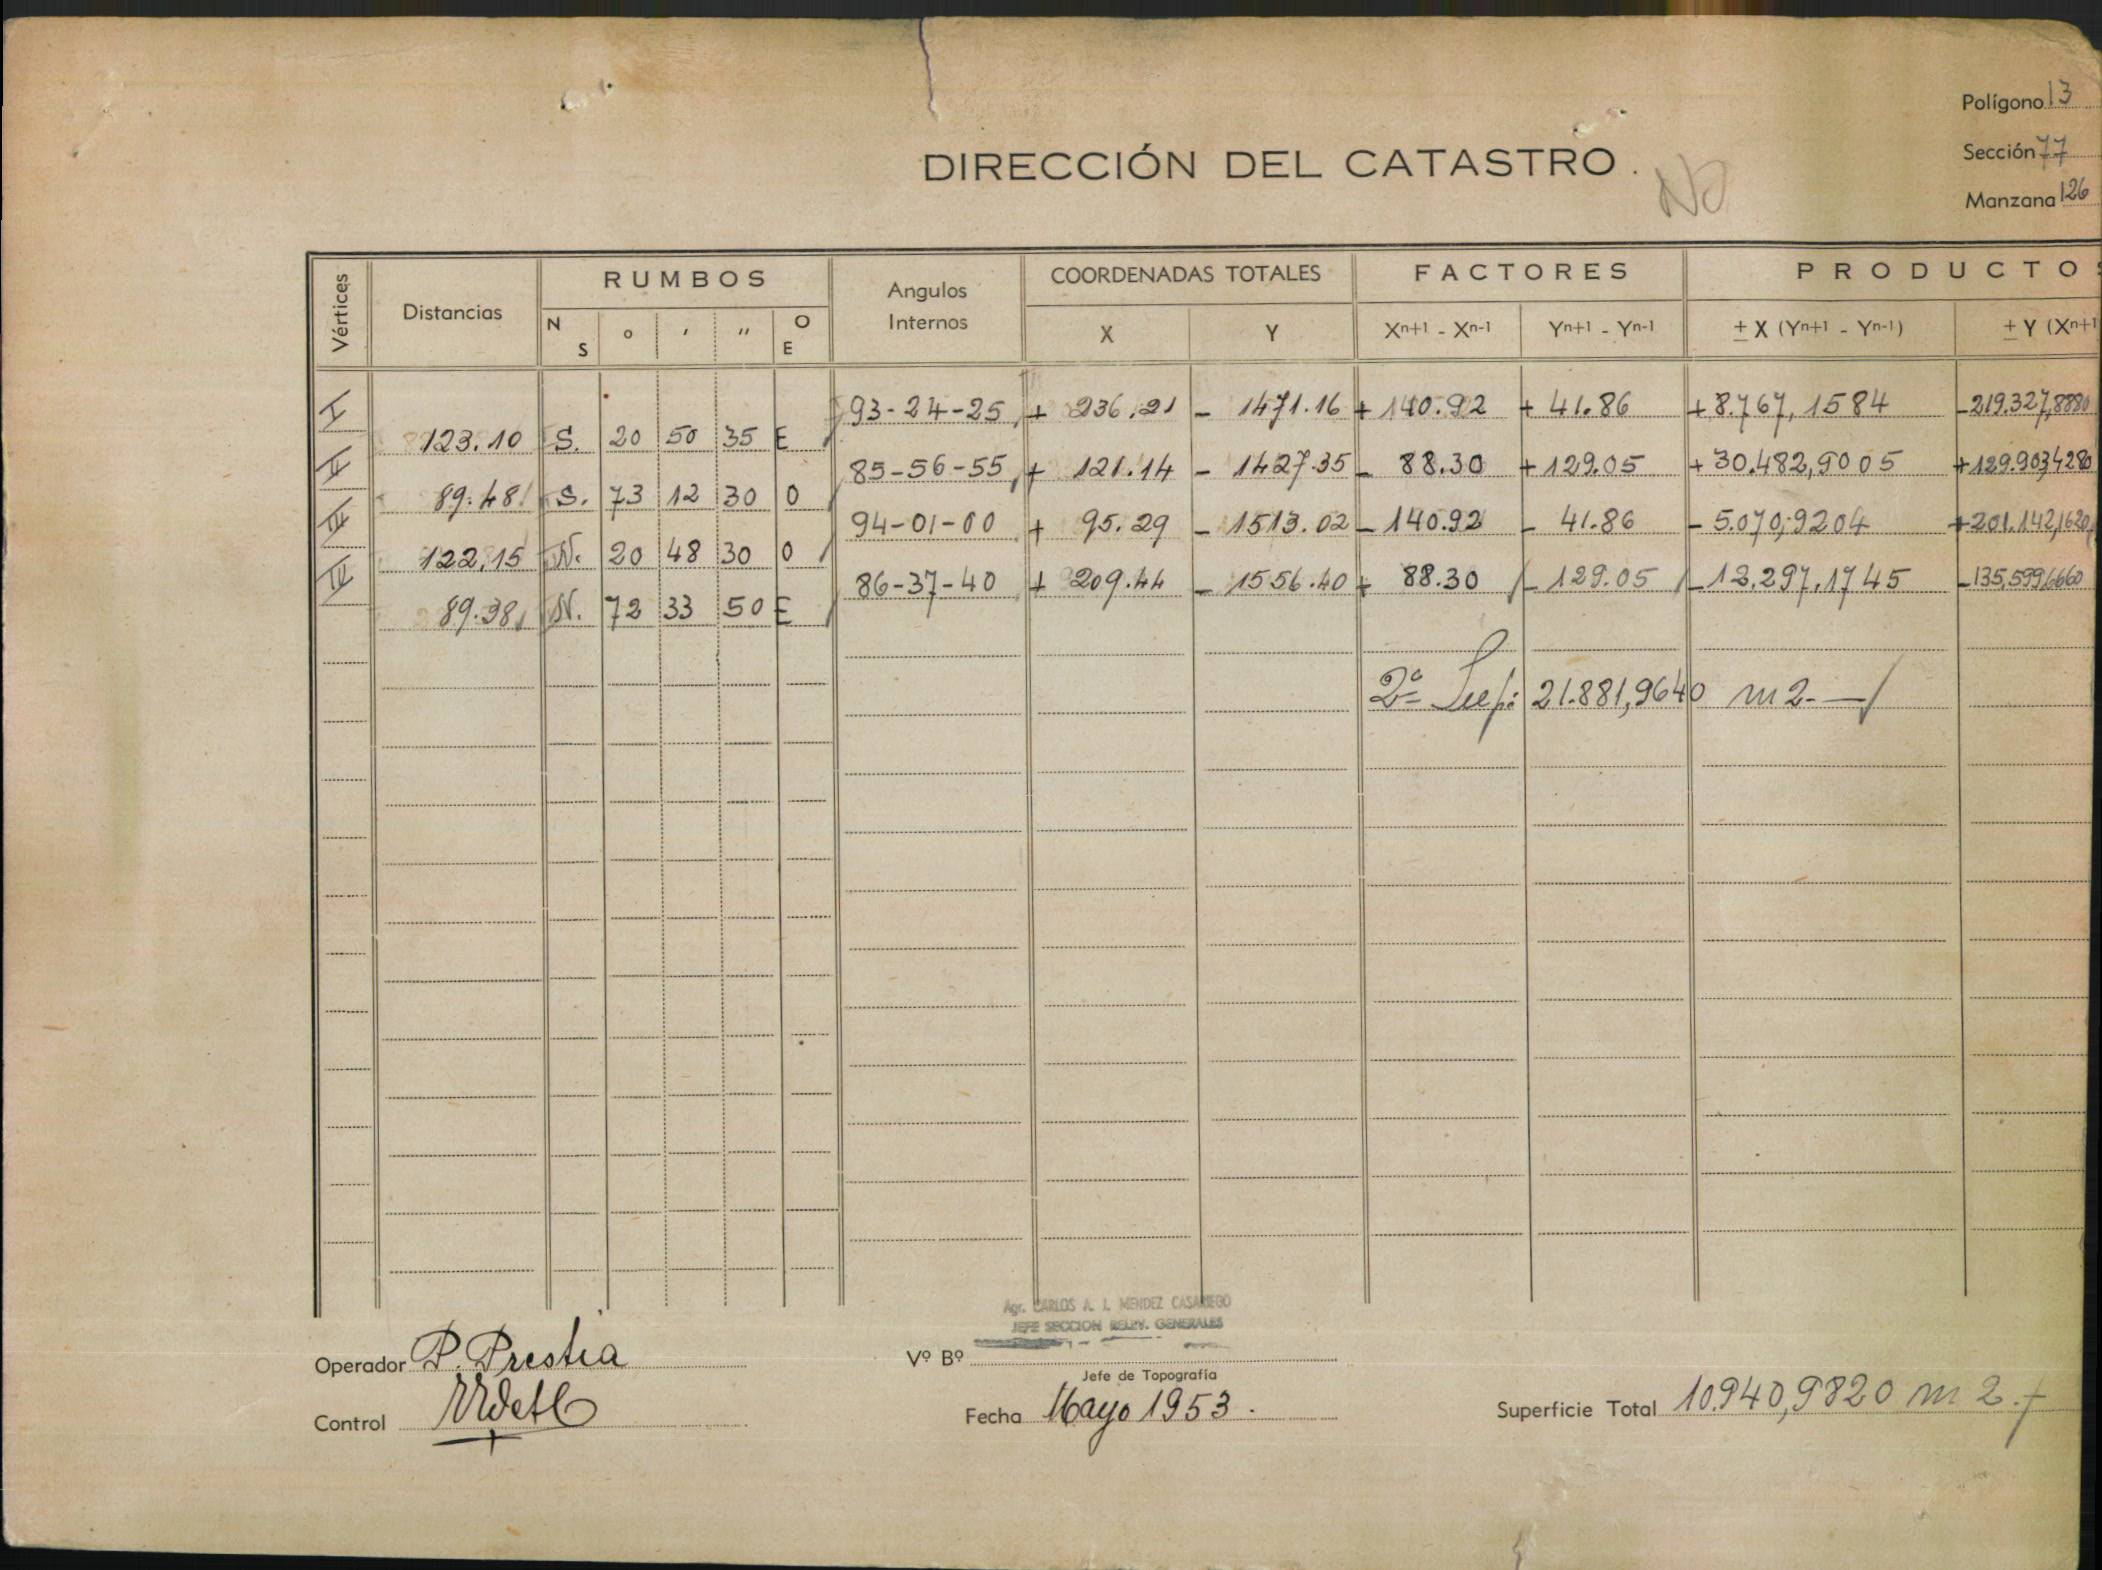 Polígono 13
DIRECCIÓN DEL CATASTRO .
Sección 77
No
Manzana 126
Vértices Distancias RUMBOS Angulos Internos COORDENADAS TOTALES FACTORES PRODUCTOS
N S o ' '' O E X Y Xn+1 - Xn-1 Yn+1 - Yn-1 ± X (Yn+1 - Yn-1) ± Y (Xn+1
93-24-25 + 236.21 - 1471.16 + 140.92 + 41.86 + 8.767,1584 - 219.327,8880
123.10 S. 20 50 35 E
85-56-55 + 121.14 - 1427.35 - 88.30 + 129.05 + 30.482,9005 + 129.903,4280
89.48 S. 73 12 30 O
94-01-00 + 95.29 - 1513.02 - 140.92 - 41.86 - 5.070,9204 + 201.142,1620
122,15 N. 20 48 30 O
86-37-40 + 209.44 - 1556.40 + 88.30 - 129.05 - 12,297,1745 - 133,599,6660
89.38 N. 72 33 50 E
2ª Sup: 21.881,9640 m2.
Agr. CARLOS A. J. MENDEZ CASARIEGO
JEFE SECCION RELEV. GENERALES
Operador P. Prestia
Vº Bº
Jefe de Topografía
Control
Fecha Mayo 1953.
Superficie Total 10.940,9820 m2.